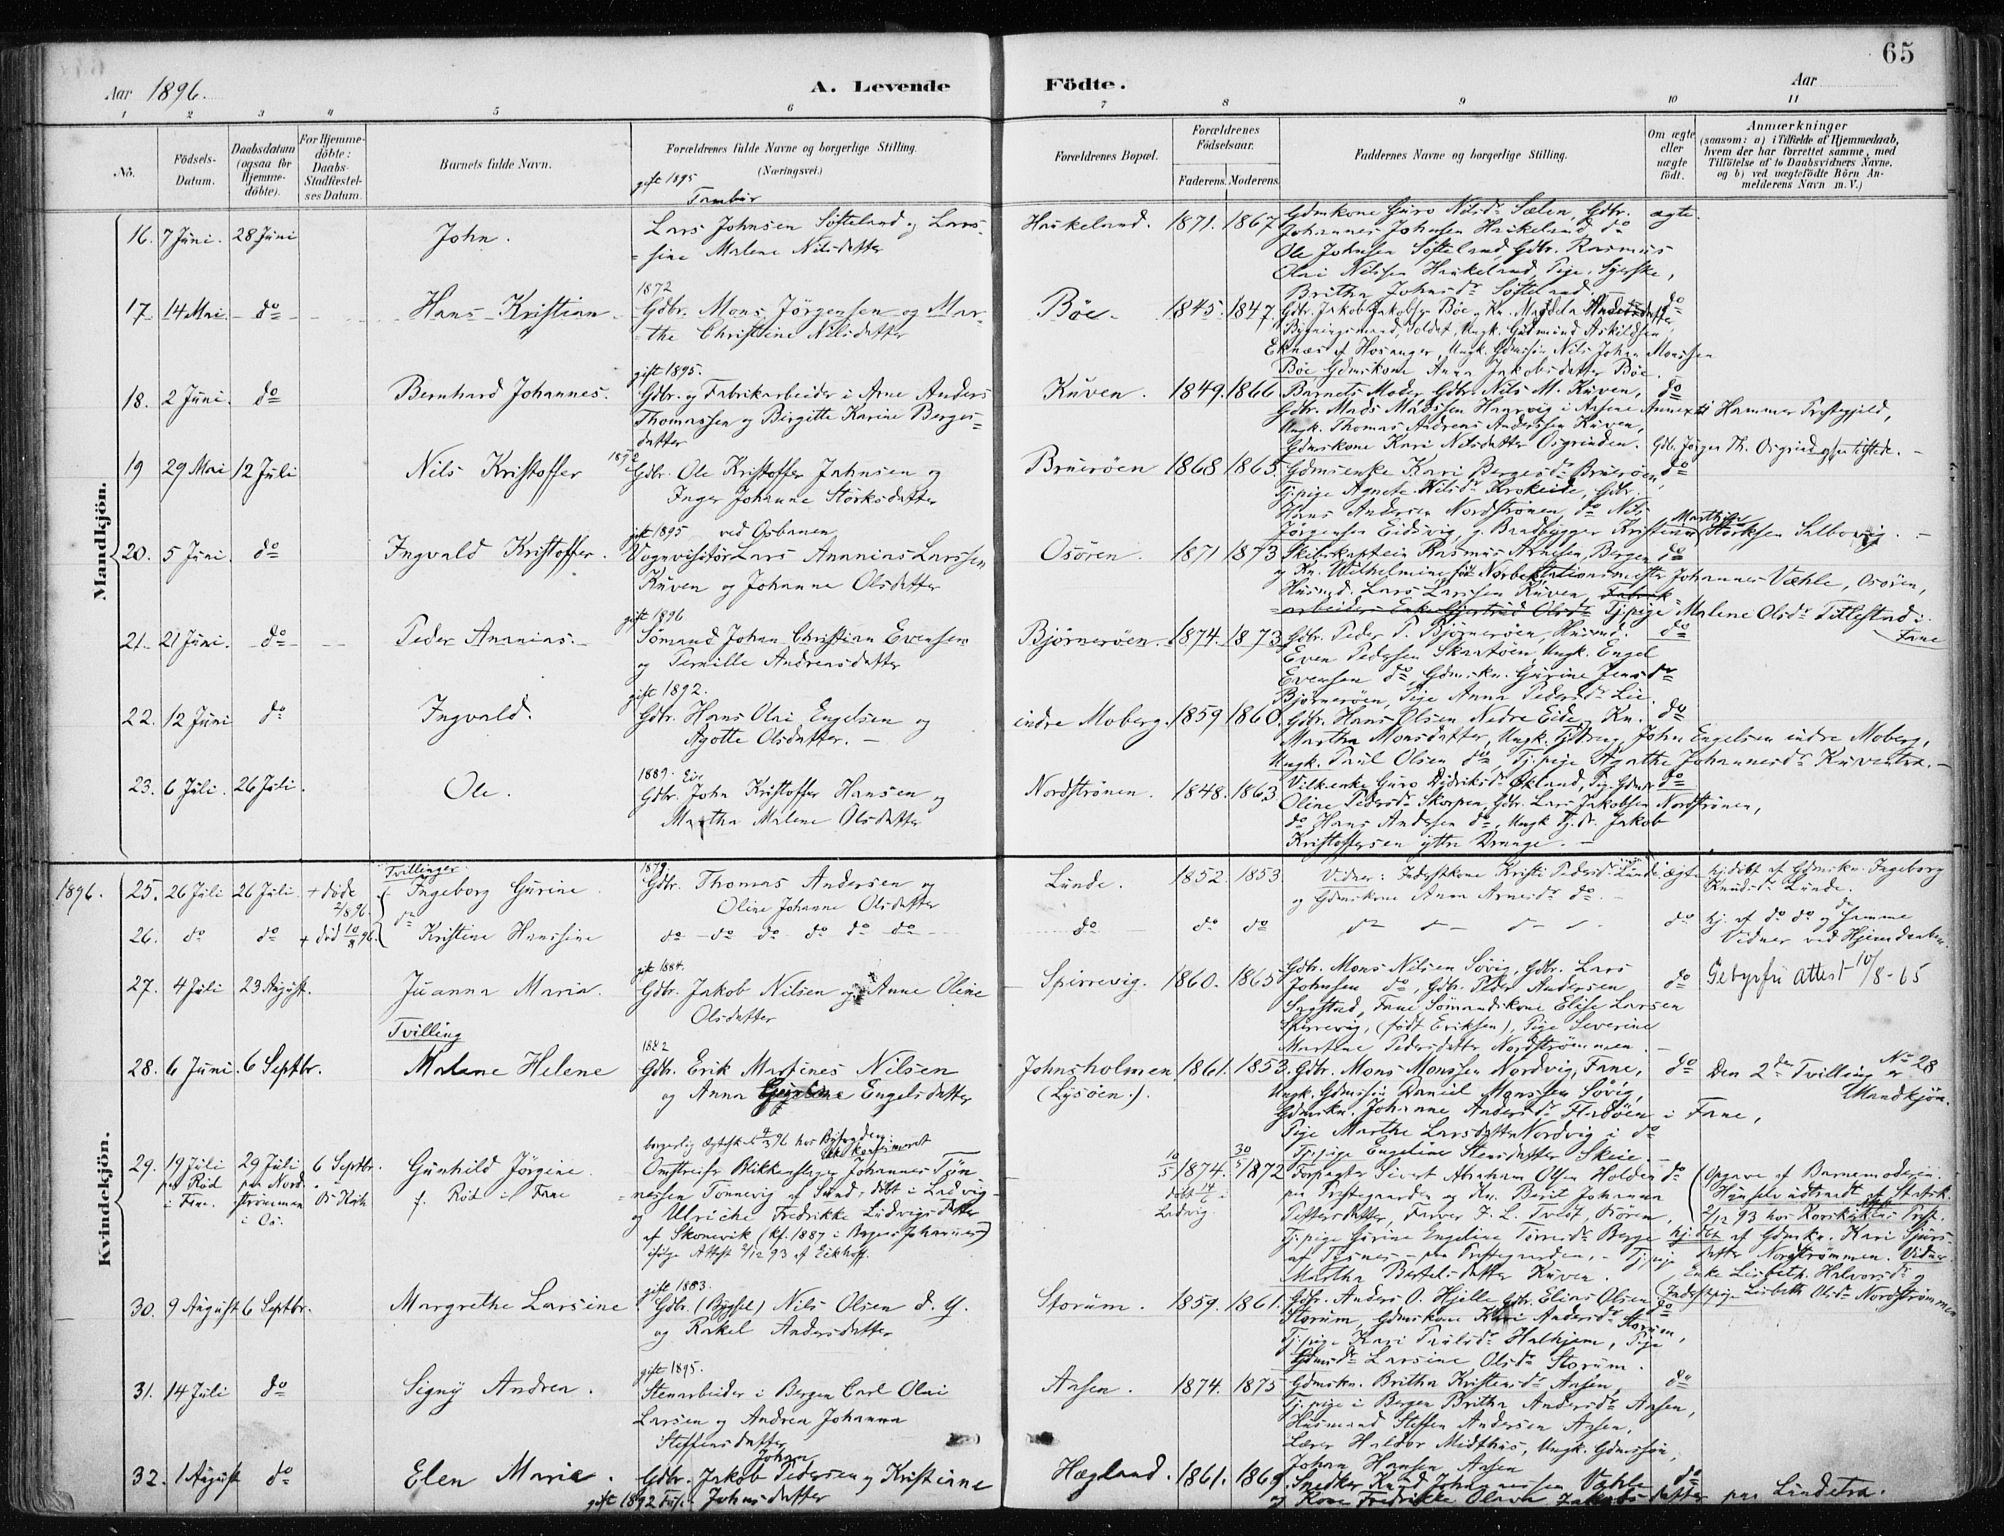 65
Aar 1896.
A. Levende Födte.
Aar
1 2 3 4 5 6 7 8 9 10 11
No.
Födsels-Datum.
Daabsdatum (ogsaa for Hjemmedöbte).
For Hjemmedöbte: Daabs-Stadfæstelses Datum.
Barnets fulde Navn.
Forældrenes fulde Navne og borgerlige Stilling. (Næringsvei.)
Forældrenes Bopæl.
Forældrenes Födselsaar.
Faderens. Moderens.
Faddernes Navne og borgerlige Stilling.
Om ægte eller uægte födt.
Anmærkninger
(saasom: a) i Tilfælde af Hjemmedaab, hvem der har forrettet samme, med Tilföielse af to Daabsvidners Navne, og b) ved uægtefödte Börn Anmelderens Navn m. V.)
Mandkjön.
16. 7 Juni. 28 Juni John.
gift 1895 Tambur
Lars Johnsen Søfteland og Lars-
sine Malene Nilsdatter
Haukeland. 1871. 1867
Gdmkone Guro Nilsdr Sælen, Gdbr.
Johannes Johnsen Haukeland, do
Ole Johnsen Søfteland, Gdbr. Rasmus
Olai Nilssen Haukeland, Pige, Syerske,
Britha Johnsdr Søfteland.
ægte.
17. 14 Mai. do Hans Kristian
1872
Gdbr. Mons Jörgensen og Mar-
the Christine Nilsdatter
Böe. 1845. 1847.
Gdbr. Jakob Jakobsen Böe og Kn. Magdela Andersdatter,
Soldat, Ungk. Gudmund Askildsen
Eknæs af Hosanger, Ungk. Gdmssön Nils Johan Monssen
Böe Gdmskone Anna Jakobsdatter Böe.
do
18. 2 Juni. do Bernhard Johannes.
gift 1895.
Gdbr. og Fabrikarbeider i Arne Anders
Thomassen og Birgitte Karine Berges-
datter
Kuven. 1849. 1866
Barnets Moder, Gdbr. Nils M. Kuven,
Gdbr. Mads Madssen Haarvig i Aasene Annex til Hammer Præstegjeld,
Ungk. Thomas Andreas Anderssen Kuven,
Gdmskone Kari Nilsdatter Osgrinden.
do
19 29 Mai 12 Juli Nils Kristoffer
1892
Gdbr. Ole Kristoffer Johnsen og
Inger Johanne Størksdatter
Bruerøen 1868. 1865
Gdmsenke Kari Bergesdr Bruerøen,
Tj.pige Agnete Nilsdr Krokeide, Gdbr.
Hans Andersen Nordstrønen, do Nils
Jörgensen Eidsvig, og Baadbygger Kristian Martinus Størksen Salbovig.
do
20. 5 Juni. do Ingvald Kristoffer.
gift 1895 ved Osbanen
Vognvisitör Lars Ananias Larssen
Kuven og Johanne Olsdatter
Osören. 1871 1873
Skibskaptein Rasmus Arnesen, Bergen
og Kn. Wilhelmine Stationsmester Johannes Væhle, Osören,
Husmd. Lars Larssen Kuven, Fabrik-
arbeider Enke Gjertrud Olsdr Tj.pige Malene Olsdr Tittlestad i
Fane
do
21. 21 Juni. do Peder Ananias.
gift 1896
Sömand Johan Christian Evensen
og Pernille Andreasdatter
Bjørnerøen. 1874. 1873
Gdbr. Peder P. Bjørnerøen, Husmd.
Even Pedersen Skaatøen, Ungk. Engel
Evensen do, Gdmskn. Gurine Jensdr
Bjørnerøen, Pige Anna Pedersdr Lie
do
22. 12 Juni do Ingvald.
gift 1892.
Gdbr. Hans Olai Engelsen og
Agotte Olsdatter.
indre Moberg. 1859 1860
Gdbr. Hans Olsen Nedre Eide og Kn.
Martha Monsdatter, Ungk. Tj.dreng John Engelsen indre Moberg,
Ungk. Paul Olsen do, Tj.pige Agathe Johannesdr Kuventræ.
do
23. 6 Juli. 26 Juli. Ole.
1889.
Gdbr. John Kristoffer Hansen og
Martha Malene Olsdatter
Nordstrønen. 1848. 1863
Guro Didriksdr Økland,
Oline Pedersdr Skorpen, Gdbr. Lars Jakobsen Nordstrønen,
do Hans Andersen do, Ungk. Tj.dr. Jakob
Kristoffersen yttre Drange.
do
1896.
Kvindekjön.
25. 26 Juli 26 Juli + döde 2/8 96. Tvillinger Ingeborg Gurine
1879
Gdbr. Thomas Andersen og
Oline Johanne Olsdatter
Lunde. 1852 1853
Vidner: Inderstkone Kristi Pedersdr Lunde
og Gdmskone Anna Arnesdr do.
ægte
hj.döbt af Gdmskn. Ingeborg
Knudsdr Lunde.
26. do do + död 10/8 96. do Kristine Hanssine
do do do do do do
do do do
do
hj. af do do og de samme
Vidner ved Hjemdaaben.
27. 4 Juli 23 August. Juanna Maria.
gift 1884.
Gdbr. Jakob Nilsen og Anne Oline
Olsdatter
Spirrevig. 1860. 1865
Gdbr. Mons Nilsen Søvig, Gdbr. Lars
Johnsen do, Gdbr. Peder Andersen
Sagstad, Fane, Sömandskone Elise Larsen
Spirrevig, (födt Eriksen), Pige Severine
Martine Pedersdatter Nordstrømmen.
do
Gebyrfri attest 10/8-65
28. 6 Juni. 6 Septbr. Tvilling Malene Helene
1882
Gdbr. Erik Martines Nilsen
og Anna Engelsdatter
Johnsholmen (Lysöen.) 1861. 1853.
Gdbr. Mons Monssen Nordvig, Fane,
Ungk. Gdmssön Daniel Monssen Søvig,
Gdmskn. Johanne Andersdr Fladöen i Fane,
Pige Marthe Larsdatter Nordvig i do
Tj.pige Engeline Stensdatter Skeie.
do
Den 2den Tvilling er No 28
Mandkjön.
29. 19 Juli paa Röd i Fane. 29 Juli paa Nordstrømmen i Os. 6 Septbr. Os Kirke
Gunhild Jörgine.
f. Röd i Fane
borgerlig ægteskab 4/3 96 hos Byfogden:
Omstreifer Blikkenslager Johannes Tön-
nessen Tönnevig af Sund, döbt i Ladvig
og Ulriche Fredrikke Ludvigsdatter
af Skonevik (kf. 1887 i Bergens Johannes)
ifölge Attest 2/12 93 af Eikhoff.
10/5 1874. döbt 14/6 i Ladvig. 30/5 1872
Forpagter Sivert Abraham Olsen Holden
paa Præstegaarden og dm. Berit Johanna
Pettersdatter, Farver J. L. Tveit, Osören,
Tj.pige Gurine Engeline Torresdr Berge
af Tysnes paa Præstegaarden, Tj.pige
Martha Bertelsdatter Kuven.
do
Opgave af Barnemoderen
2/12 93 hos
hj.döbt af Gdmskn. Kari Sjurs-
datter Nordstrømmen. Vidner
Enke Lisbeth Halvorsdr og
Inderstpige Lisbeth Olsdr Nordstrømmen
30. 9 August 6 Septbr. Margrethe Larsine
gift 1883.
Gdbr. (Bygsel) Nils Olsen d. Y.
og Rakel Andersdatter
Storum. 1859. 1861.
Gdbr. Anders O. Hjelle, Gdbr. Elias Olsen
Storum, Gdmskone Kari Andersdr Storum,
Tj.pige Kari Paulsdr Halhjem, Pige
Gdmsdr Larsine Olsdr Storum.
do
31. 14 Juli do Signy Andrea.
gift 1895.
Stenarbeider i Bergen Carl Olai
Larsen og Andrea Johanna
Steffensdatter
Aasen. 1874. 1875
Gdmskn. Britha Kristensdr Aasen,
Tj.pige i Bergen Britha Andersdr Aasen,
Husmand Steffen Andersen Aasen,
Lærer Haldor Midthus, Ungk. Gdmssön
Johan Hansen Aasen
do
32. 1 August do Elen Maria.
Gdbr. Jakob Johan Pedersen og Kristianne
gift 1892 Johnsdatter
Hægland. 1861. 1869
Snedker Knud Johannessen Væhle
og Kone Fredrikke Olava Jakobsdatter paa Lindetræ.
do